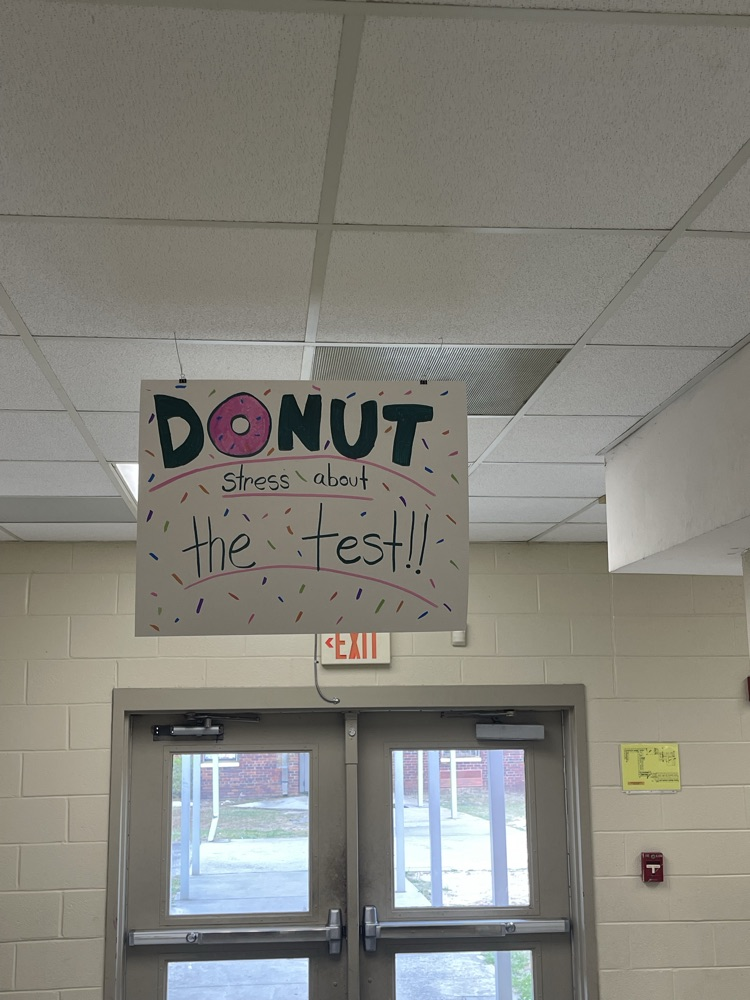 DONUT
stress about
the test!!
EXIT